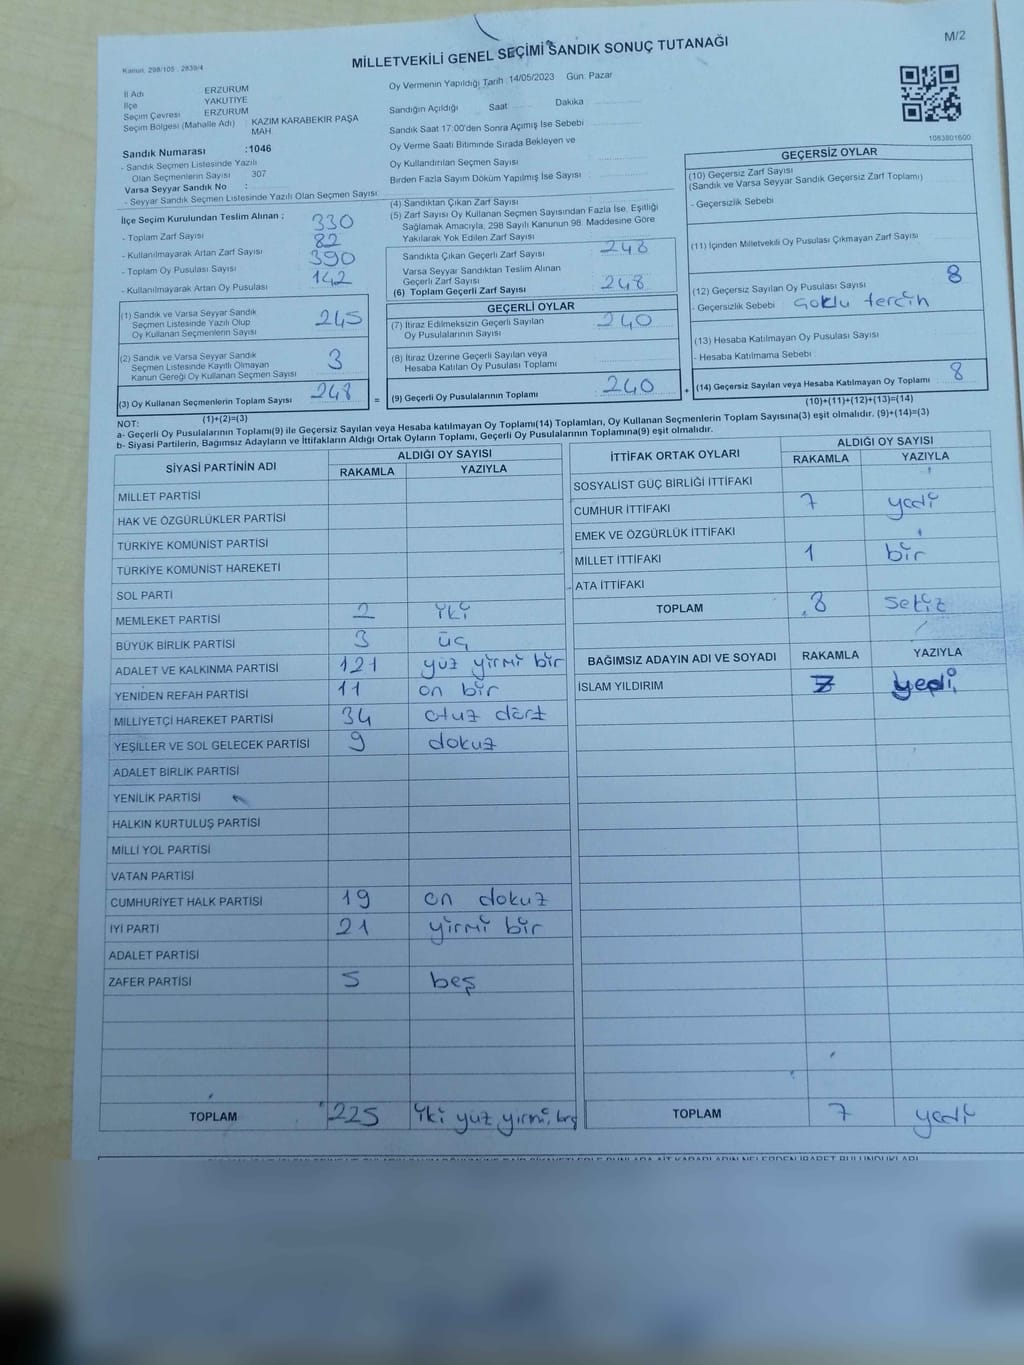 MİLLETVEKİLİ GENEL SEÇİMİ SANDIK SONUÇ TUTANAĞI
M/2
Kanun. 298/105 , 2839/4
İl Adı ERZURUM
İlçe YAKUTİYE
Seçim Çevresi ERZURUM
Seçim Bölgesi (Mahalle Adı) : KAZIM KARABEKİR PAŞA MAH.
Sandık Numarası :1046
- Sandık Seçmen Listesinde Yazılı
Olan Seçmenlerin Sayısı 307
Varsa Seyyar Sandık No :
- Seyyar Sandık Seçmen Listesinde Yazılı Olan Seçmen Sayısı
Oy Vermenin Yapıldığı Tarih 14/05/2023 Gün. Pazar
Sandığın Açıldığı Saat Dakika
Sandık Saat 17:00'den Sonra Açımış İse Sebebi
Oy Verme Saati Bitiminde Sırada Bekleyen ve
Oy Kullandırılan Seçmen Sayısı
Birden Fazla Sayım Döküm Yapılmış İse Sayısı
1083801600
İlçe Seçim Kurulundan Teslim Alınan ;
- Toplam Zarf Sayısı 330
- Kullanılmayarak Artan Zarf Sayısı 82
- Toplam Oy Pusulası Sayısı 390
- Kullanılmayarak Artan Oy Pusulası 142
(1) Sandık ve Varsa Seyyar Sandık
Seçmen Listesinde Yazılı Olup
Oy Kullanan Seçmenlerin Sayısı 245
(2) Sandık ve Varsa Seyyar Sandık
Seçmen Listesinde Kayıtlı Olmayan
Kanun Gereği Oy Kullanan Seçmen Sayısı 3
(3) Oy Kullanan Seçmenlerin Toplam Sayısı 248 =
(1)+(2)=(3)
(4) Sandıktan Çıkan Zarf Sayısı
(5) Zarf Sayısı Oy Kullanan Seçmen Sayısından Fazla İse, Eşitliği
Sağlamak Amacıyla, 298 Sayılı Kanunun 98. Maddesine Göre
Yakılarak Yok Edilen Zarf Sayısı
Sandıkta Çıkan Geçerli Zarf Sayısı 248
Varsa Seyyar Sandıktan Teslim Alınan
Geçerli Zarf Sayısı
(6) Toplam Geçerli Zarf Sayısı 248
GEÇERLİ OYLAR
(7) İtiraz Edilmeksizin Geçerli Sayılan
Oy Pusulalarının Sayısı 240
(8) İtiraz Üzerine Geçerli Sayılan veya
Hesaba Katılan Oy Pusulası Toplamı
(9) Geçerli Oy Pusulalarının Toplamı 240 +
GEÇERSİZ OYLAR
(10) Geçersiz Zarf Sayısı
(Sandık ve Varsa Seyyar Sandık Geçersiz Zarf Toplamı)
- Geçersizlik Sebebi
(11) İçinden Milletvekili Oy Pusulası Çıkmayan Zarf Sayısı
(12) Geçersiz Sayılan Oy Pusulası Sayısı 8
- Geçersizlik Sebebi Çoklu tercih
(13) Hesaba Katılmayan Oy Pusulası Sayısı
- Hesaba Katılmama Sebebi
(14) Geçersiz Sayılan veya Hesaba Katılmayan Oy Toplamı 8
(10)+(11)+(12)+(13)=(14)
NOT:
a- Geçerli Oy Pusulalarının Toplamı(9) ile Geçersiz Sayılan veya Hesaba katılmayan Oy Toplamı(14) Toplamları, Oy Kullanan Seçmenlerin Toplam Sayısına(3) eşit olmalıdır. (9)+(14)=(3)
b- Siyasi Partilerin, Bağımsız Adayların ve İttifakların Aldığı Ortak Oyların Toplamı, Geçerli Oy Pusulalarının Toplamına(9) eşit olmalıdır.
SİYASİ PARTİNİN ADI ALDIĞI OY SAYISI
RAKAMLA YAZIYLA
MİLLET PARTİSİ
HAK VE ÖZGÜRLÜKLER PARTİSİ
TÜRKİYE KOMÜNİST PARTİSİ
TÜRKİYE KOMÜNİST HAREKETİ
SOL PARTİ
MEMLEKET PARTİSİ 2 iki
BÜYÜK BİRLİK PARTİSİ 3 üç
ADALET VE KALKINMA PARTİSİ 121 yüz yirmi bir
YENİDEN REFAH PARTİSİ 11 on bir
MİLLİYETÇİ HAREKET PARTİSİ 34 otuz dört
YEŞİLLER VE SOL GELECEK PARTİSİ 9 dokuz
ADALET BİRLİK PARTİSİ
YENİLİK PARTİSİ
HALKIN KURTULUŞ PARTİSİ
MİLLİ YOL PARTİSİ
VATAN PARTİSİ
CUMHURİYET HALK PARTİSİ 19 on dokuz
İYİ PARTİ 21 yirmi bir
ADALET PARTİSİ
ZAFER PARTİSİ 5 beş
TOPLAM 225 iki yüz yirmi beş
İTTİFAK ORTAK OYLARI ALDIĞI OY SAYISI
RAKAMLA YAZIYLA
SOSYALİST GÜÇ BİRLİĞİ İTTİFAKI
CUMHUR İTTİFAKI 7 yedi
EMEK VE ÖZGÜRLÜK İTTİFAKI
MİLLET İTTİFAKI 1 bir
ATA İTTİFAKI
TOPLAM 8 sekiz
BAĞIMSIZ ADAYIN ADI VE SOYADI RAKAMLA YAZIYLA
İSLAM YILDIRIM 7 yedi
TOPLAM 7 yedi